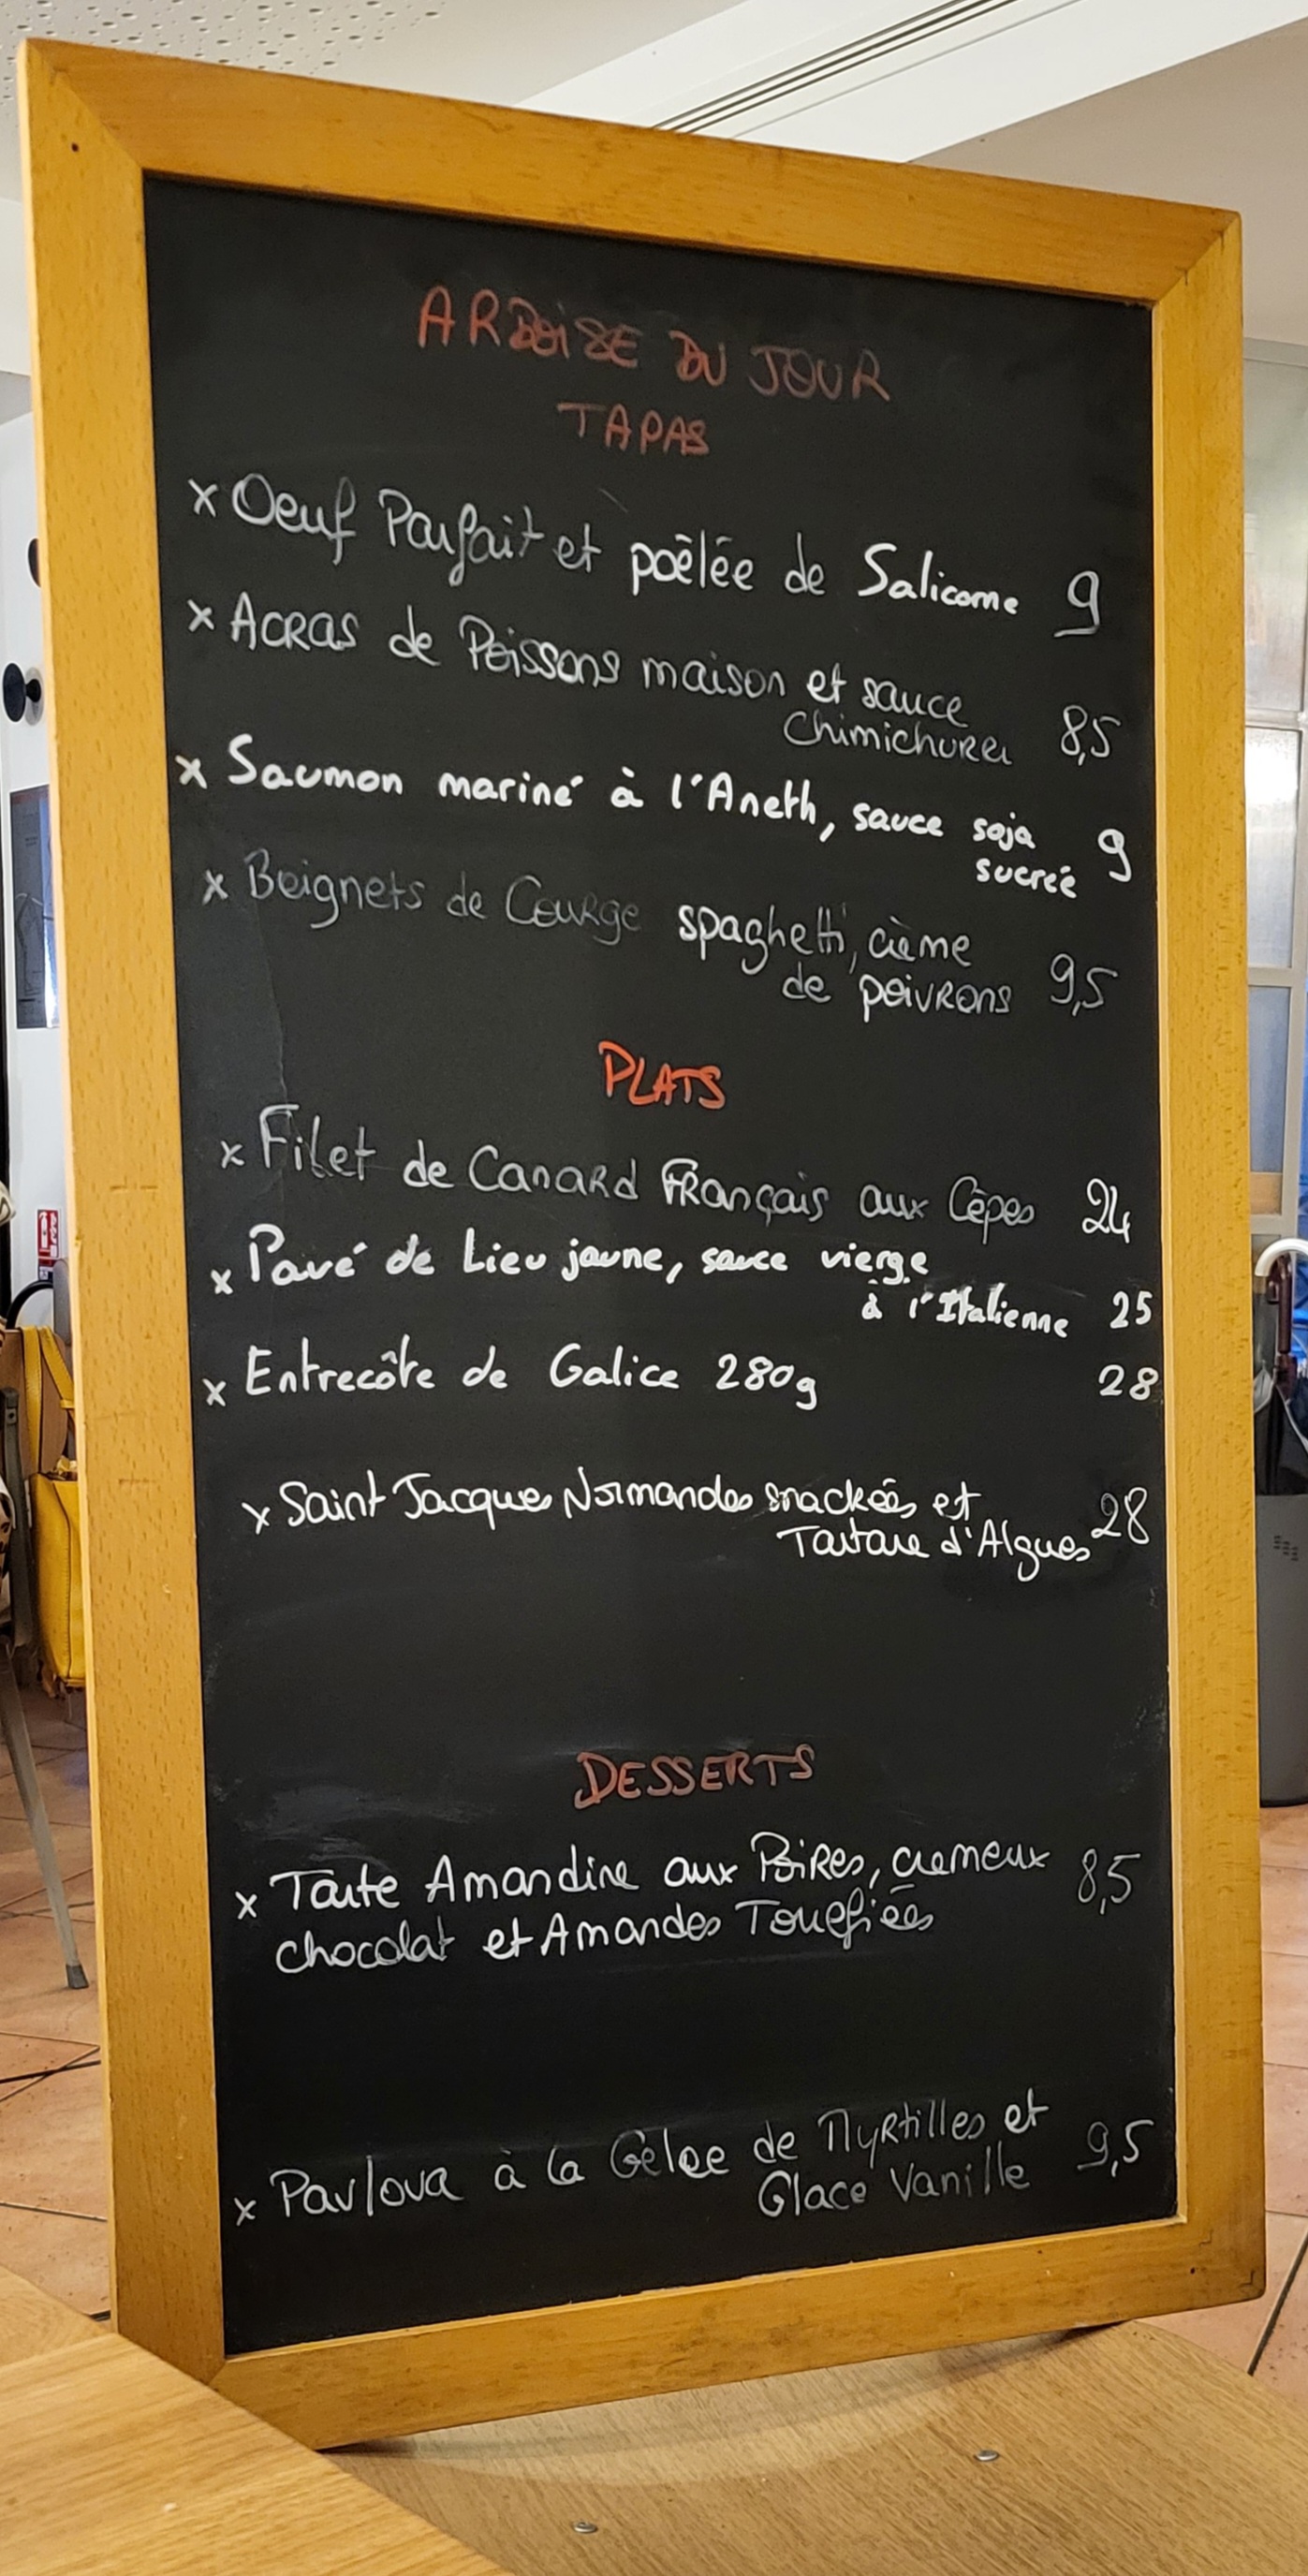 ARDOISE DU JOUR
TAPAS
x Oeuf Parfait et poêlée de Salicorne 9
x ACRAS de Poissons maison et sauce
Chimichurri 8,5
x Saumon mariné à l'Aneth, sauce soja
sucrée 9
x Beignets de Courge spaghetti, crème
de poivrons 9,5
PLATS
x Filet de Canard Français aux Cèpes 24
x Pavé de Lieu jaune, sauce vierge
à l'Italienne 25
x Entrecôte de Galice 280g 28
x Saint Jacques Normandes snackées et
Tartare d'Algues 28
DESSERTS
x Tarte Amandine aux Poires, cremeux 8,5
chocolat et Amandes Torrefiées
x Pavlova à la Gelee de Myrtilles et
Glace Vanille 9,5